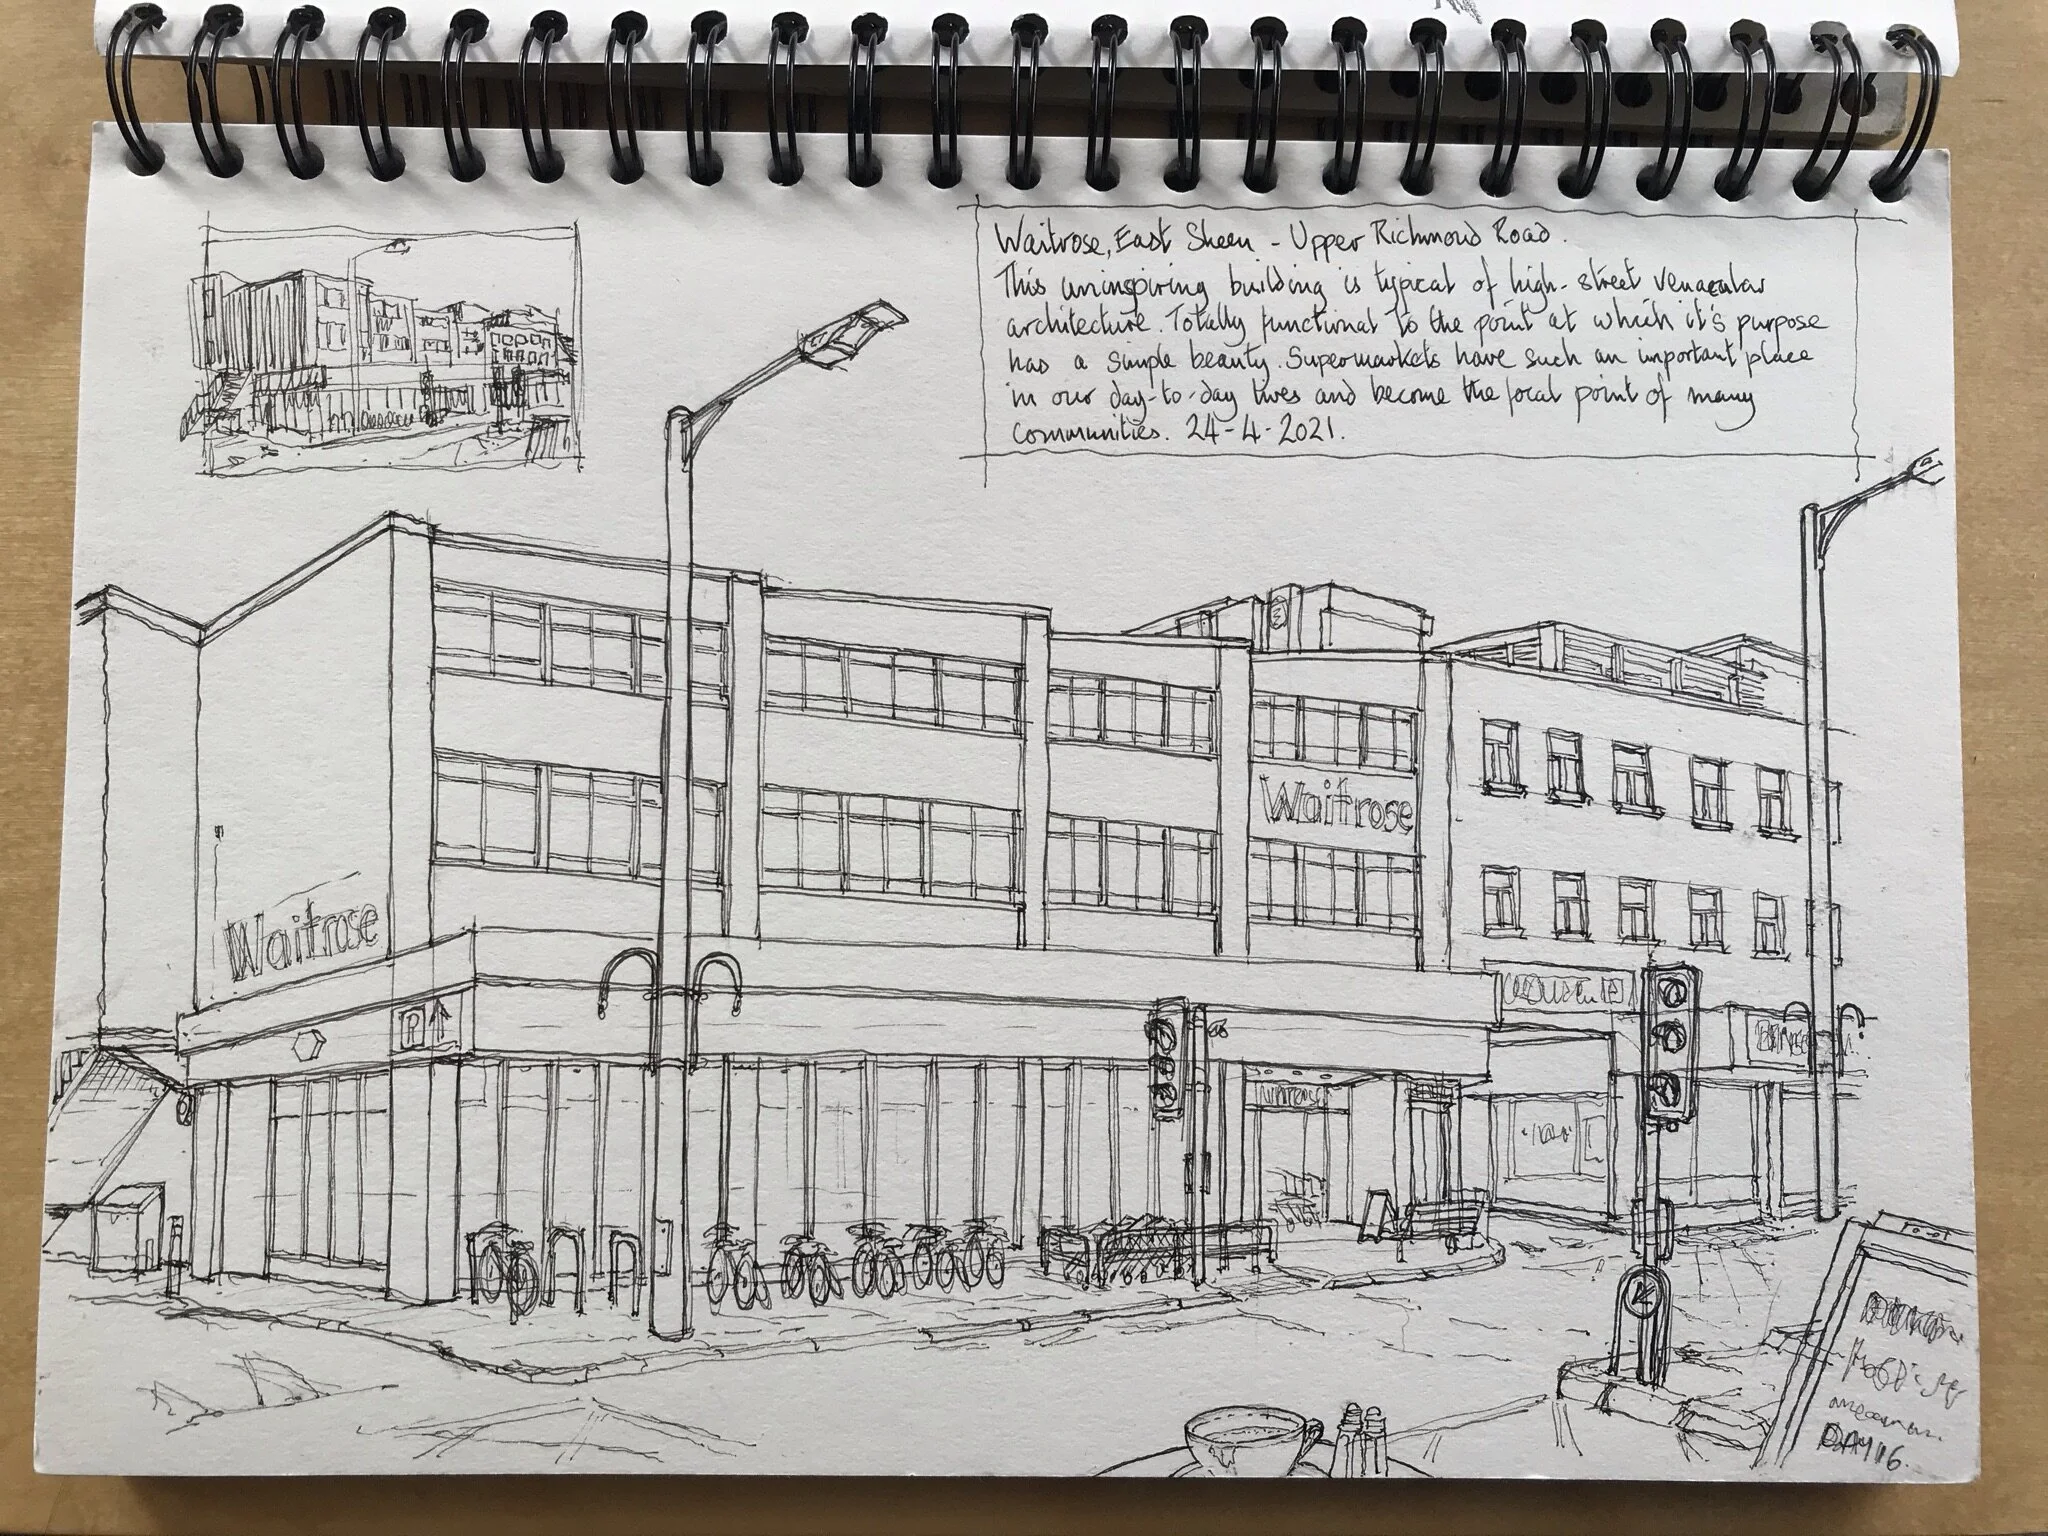 Waitrose, East Sheen - Upper Richmond Road.
This uninspiring building is typical of high-street venacular
architecture. Totally functional to the point at which it's purpose
has a simple beauty. Supermarkets have such an important place
in our day-to-day lives and become the focal point of many
communities. 24-4-2021.
Waitrose
Waitrose
P
Waitrose
DAY 16.